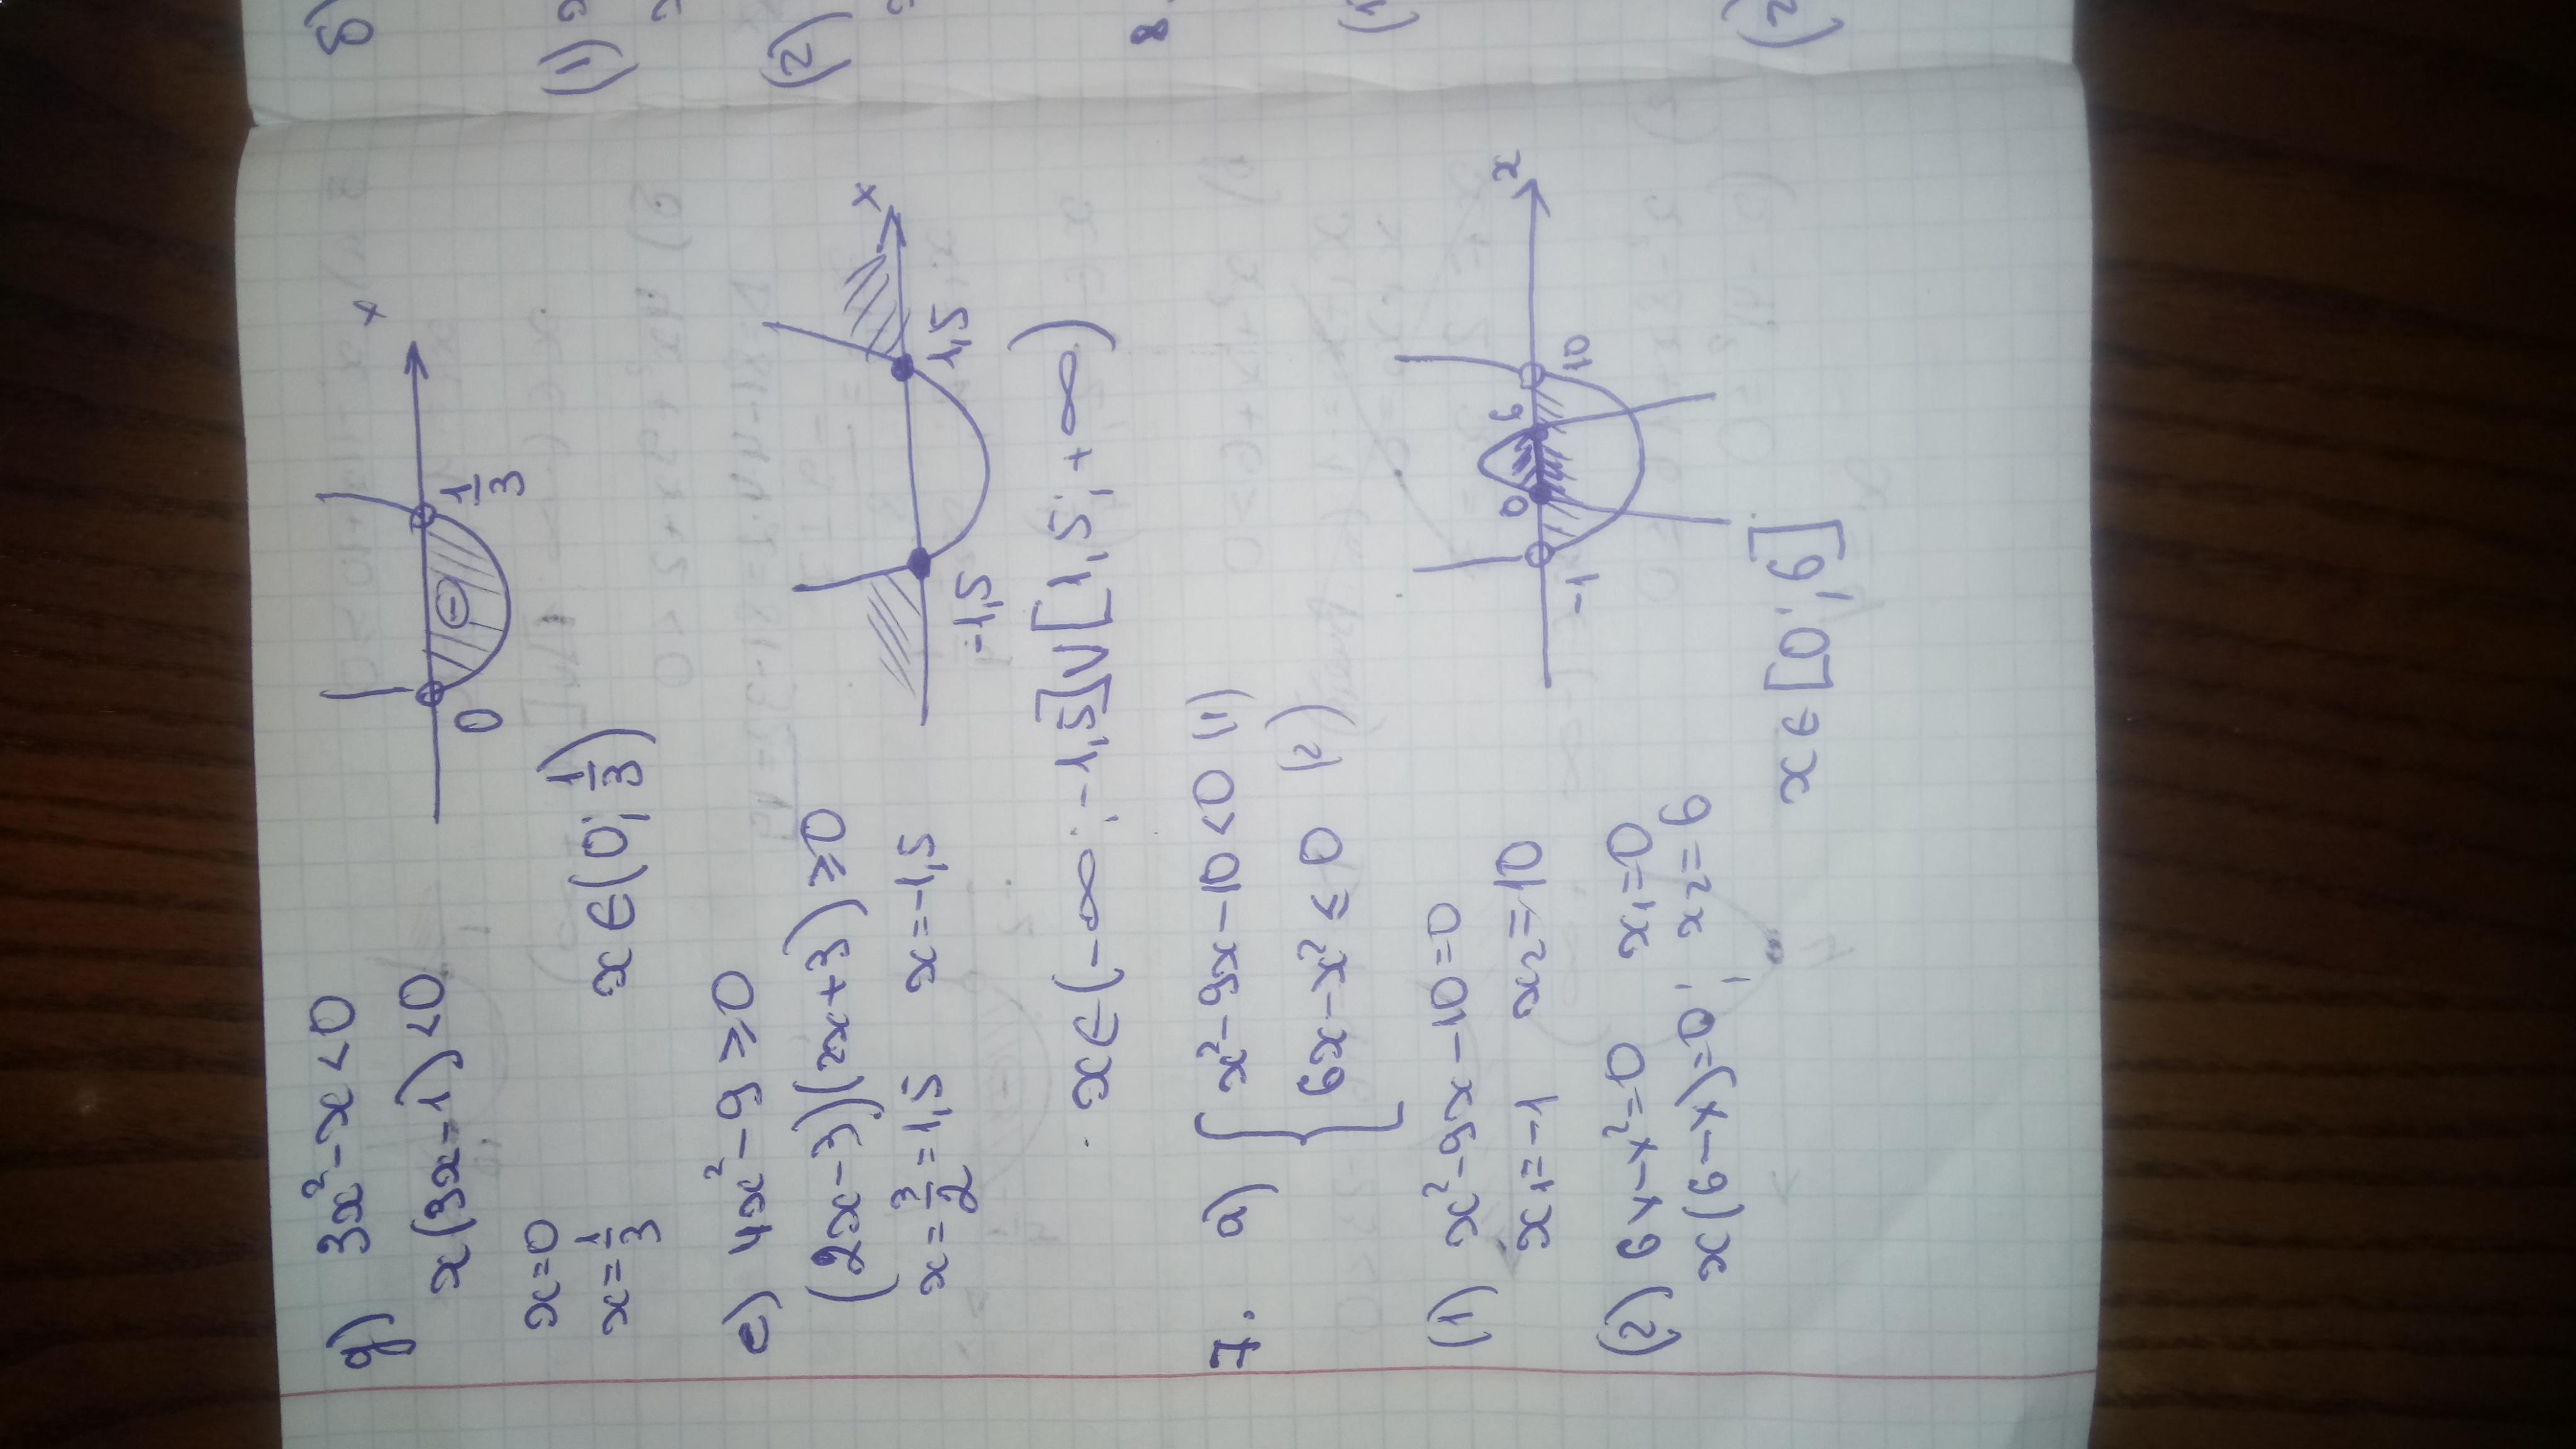 д) 3x² - x < 0
x(3x-1) < 0
x=0
x = 1/3
0 1/3 x
⊖
x ∈ (0; 1/3)
е) 4x² - 9 ≥ 0
(2x-3)(2x+3) ≥ 0
x = 3/2 = 1,5 x = -1,5
-1,5 1,5 x
x ∈ (-∞; -1,5] ∪ [1,5; +∞)
7. а) { x² - 9x - 10 < 0 (1)
6x - x² ≤ 0 (2)
(1) x² - 9x - 10 = 0
x₁ = -1 x₂ = 10
(2) 6x - x² = 0 x₁ = 0
x(6-x) = 0; x₂ = 6
-1 0 6 10 x
x ∈ [0; 6]
б)
(1)
(2)
8.
(1)
(2)